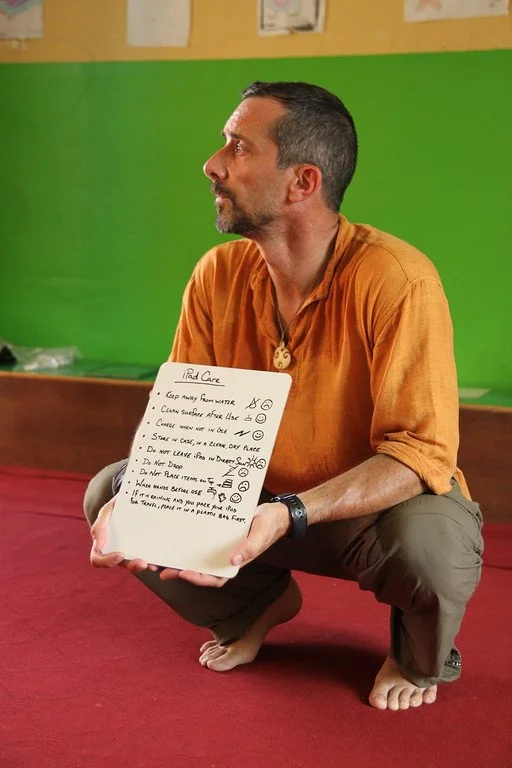 iPad Care
• Keep away from water
• Clean surface after use
• Charge when not in use
• Store in case, in a clean, dry place
• Do not leave iPad in Direct Sun
• Do not Drop
• Do not Place items on Top
• Wash hands before use
• If it is raining and you pack your iPad
for travel, place it in a plastic bag first.